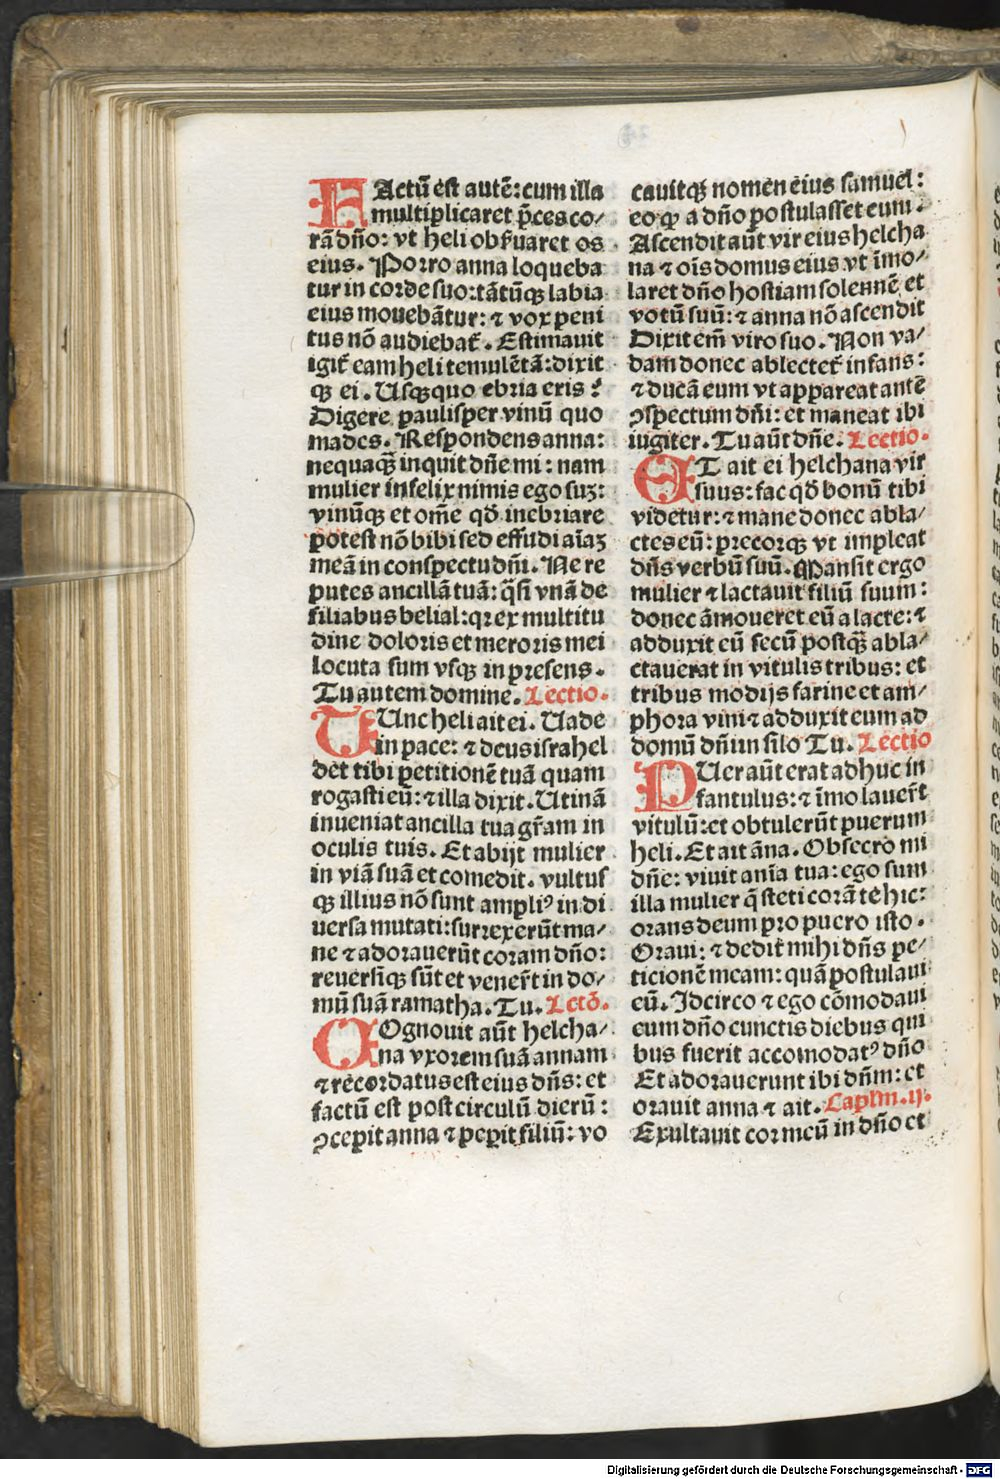 FActū est autē: cum illa
multiplicaret p̄ces co⸗
rā dn̄o: vt heli obſ̄uaret os
eius. Porro anna loqueba
tur in corde suo: tātūqꝫ labia
eius mouebātur: ⁊ vox peni
tus nō audiebat̄. Estimauit
igit̄ eam heli temulētā: dixit
qꝫ ei. Usqꝫquo ebria eris?
Digere paulisper vinū quo
mades. Respondens anna:
nequaqꝫ̄ inquit dn̄e mi: nam
mulier infelix nimis ego suꝫ:
vinūqꝫ et om̄e qd̄ inebriare
potest nō bibi sed effudi aīaꝫ
meā in conspectu dn̄i. Ne re
putes ancillā tuā: q̄si vnā de
filiabus belial: qꝛ ex multitu
dine doloris et meroris mei
locuta sum vsqꝫ in presens.
Tu autem domine. Lectio.
TUnc heli ait ei. Uade
in pace: ⁊ deus israhel
det tibi petitionē tuā quam
rogasti eū: ⁊ illa dixit. Utinā
inueniat ancilla tua gr̄am in
oculis tuis. Et abijt mulier
in viā suā et comedit. vultus
qꝫ illius nō sunt ampliꝰ in di
uersa mutati: surrexerūt ma⸗
ne ⁊ adorauerūt coram dn̄o:
reuersiqꝫ sūt et vener̄t in do⸗
mū suā ramatha. Tu. Lectō.
COgnouit aūt helcha⸗
na vxorem suā annam
⁊ recordatus est eius dn̄s: et
factū est post circulū dierū:
ꝯcepit anna ⁊ peꝑit filiū: vo
cauitqꝫ nomen eius samuel:
eo qꝙ a dn̄o postulasset eum.
Ascendit aūt vir eius helcha
na ⁊ oīs domus eius vt īmo⸗
laret dn̄o hostiam solennē et
votū suū: ⁊ anna nō ascendit
Dixit em̄ viro suo. Non va⸗
dam donec ablectet̄ infans:
⁊ ducā eum vt appareat ante
ꝯspectum dn̄i: et maneat ibi
iugiter. Tu aūt dn̄e. Lectio.
ET ait ei helchana vir
suus: fac qd̄ bonū tibi
videtur: ⁊ mane donec abla⸗
ctes eū: precorqꝫ vt impleat
dn̄s verbū suū. Mansit ergo
mulier ⁊ lactauit filiū suum:
donec āmoueret eū a lacte: ⁊
adduxit eū secū postqꝫ̄ abla⸗
ctauerat in vitulis tribus: et
tribus modijs farine et am⸗
phora vini ⁊ adduxit eum ad
domū dn̄i in silo Tu. Lectio
PUer aūt erat adhuc in
fantulus: ⁊ īmolauer̄t
vitulū: et obtulerūt puerum
heli. Et ait āna. Obsecro mi
dn̄e: viuit anīa tua: ego sum
illa mulier q̄ steti corā te hic:
orans deum pro puero isto.
Oraui: ⁊ dedit mihi dn̄s pe⸗
ticionē meam: quā postulaui
eū. Idcirco ⁊ ego cōmodaui
eum dn̄o cunctis diebus qui
bus fuerit accomodatꝰ dn̄o
Et adorauerunt ibi dn̄m: et
orauit anna ⁊ ait. Caplm̄. ij.
Exultauit cor meū in dn̄o et
Digitalisierung gefördert durch die Deutsche Forschungsgemeinschaft - DFG